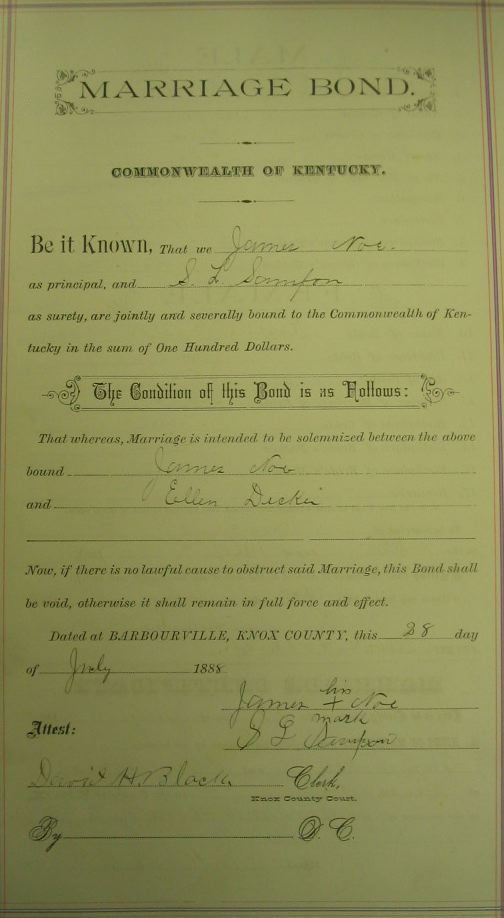 MARRIAGE BOND.
COMMONWEALTH OF KENTUCKY.
Be it Known, That we James Noe.
as principal, and S. L Sampson
as surety, are jointly and severally bound to the Commonwealth of Ken-
tucky in the sum of One Hundred Dollars.
The Condition of this Bond is as Follows:
That whereas, Marriage is intended to be solemnized between the above
bound James Noe
and Ellen
Now, if there is no lawful cause to obstruct said Marriage, this Bond shall
be void, otherwise it shall remain in full force and effect.
Dated at BARBOURVILLE, KNOX COUNTY, this 28 day
of July 1888
his
James + Noe
mark
Attest:
S L Sampson
David H. Black Clerk,
Knox County Court.
By D. C.